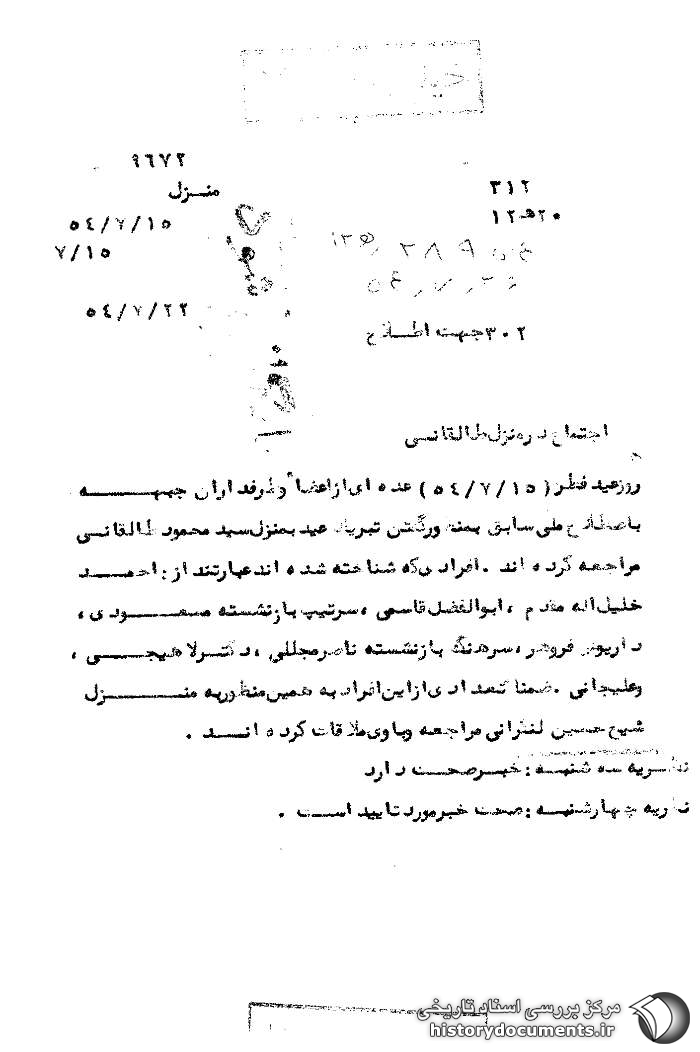 خیلی
۳۱۲
۹٦۷۲
۲۰ هـ ۱۲
منزل
۵٤/۷/۱۵
۷/۱۵
۵٤/۷/۲۲
۳۰۲ جهت اطلاع
اجتماع در منزل طالقانی
روز عید فطر (۵٤/۷/۱۵) عده ای از اعضاء و طرفداران جبهه
باصطلاح ملی سابق بمنظور گفتن تبریک عید بمنزل سید محمود طالقانی
مراجعه کرده اند . افرادی که شناخته شده اند عبارتند از : احمد
خلیل اله مقدم ، ابوالفضل قاسمی ، سرتیپ بازنشسته مسعودی ،
داریوش فروهر ، سرهنگ بازنشسته ناصر مجللی ، دکتر لاهیجی ،
و علیجانی . ضمنا تعدادی از این افراد به همین منظور به منزل
شیخ حسین لنکرانی مراجعه و با وی ملاقات کرده اند .
نظریه سه شنبه : خبر صحت دارد
نظریه چهارشنبه : صحت خبر مورد تایید است .
مرکز بررسی اسناد تاریخی
historydocuments.ir